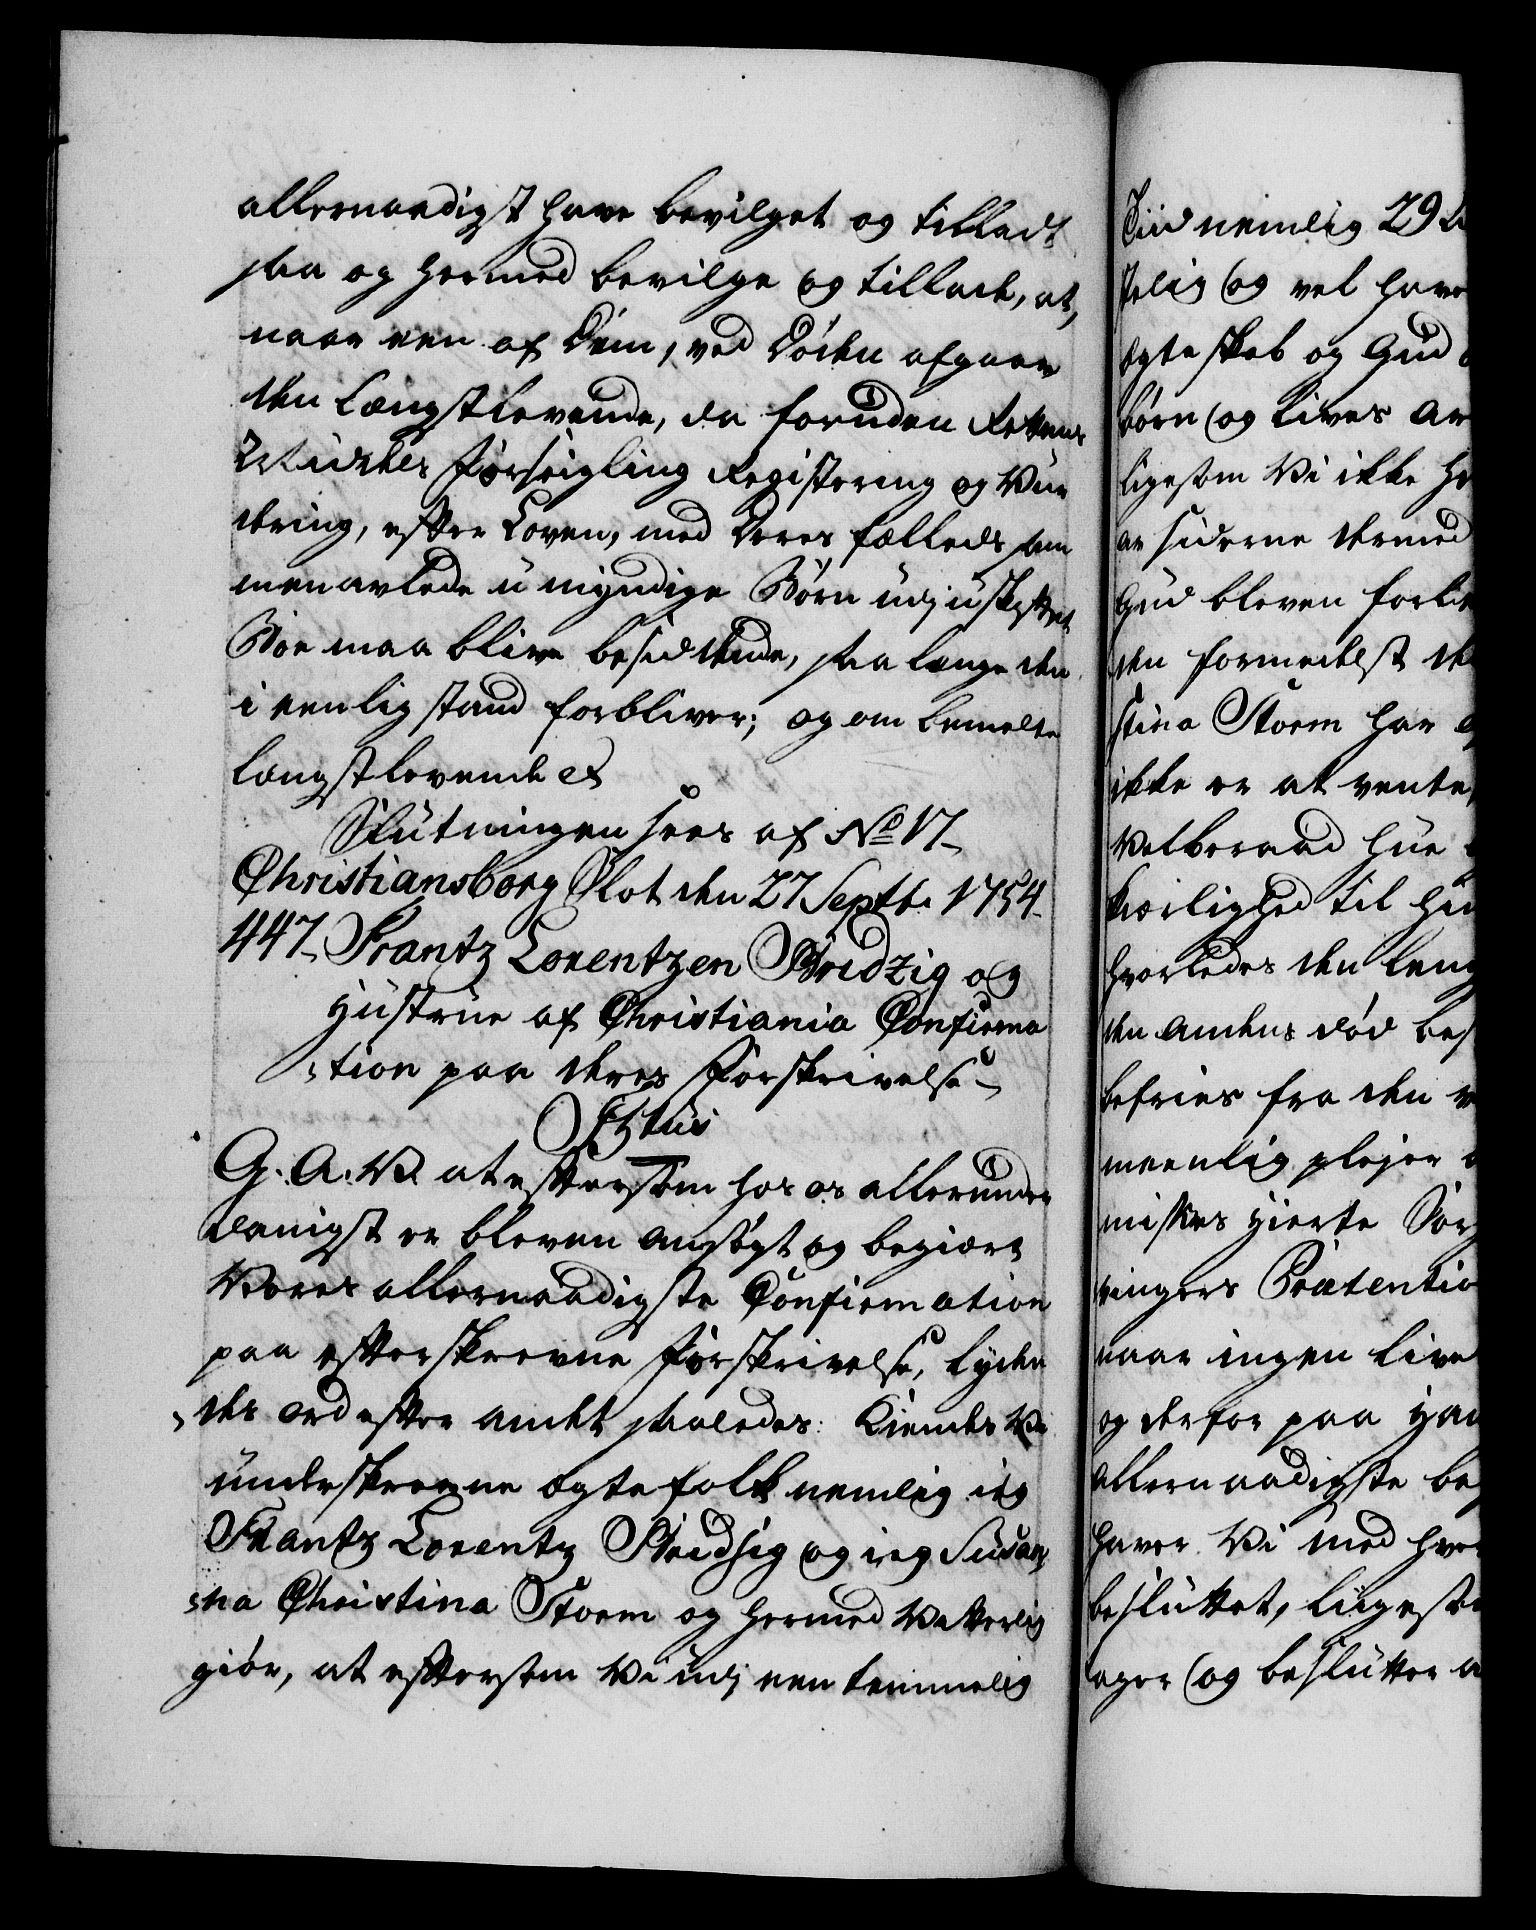 allernaadigst have bevilget og tilladt,
saa og hermed bevilge og tillade, at,
naar een af Dem, ved Døden afgaaer
den længstlevende, da foruden Rettens
Middel Forseigling Registering og Vur
dering, efter Loven, med deres fælleds sam
menavlede umyndige Børn udi uskiftet
Boe maa blive besiddende, saa længe den
i eenlig stand forbliver; og om bemelte
længstlevende &
Slutningen sees af No 17
Christiansborg Slot den 27 Septb. 1754
447. Frantz Lorentzen Bredzig og
Hustrue af Christiania Confirma
tion paa deres Forskrivelse
G. A. V. at eftersom hos os allerunder
danigst er bleven ansøgt og begiert
Vores allernaadigste Confirmation
paa efterskrevne Forskrivelse, lyden
des ord efter andet saaledes: Kiendes Vi
underskrevne ægtefolk nemlig ieg
Frantz Lorentz Bredsig og ieg Susan
na Christina Storm og hermed Vitterlig
giør, at eftersom Vi udi een temmelig
Tiid nemlig 29
stelig og vel have
ægteskab og Gud
børn og Lives Ar
ligesom Vi ikke
ar siderne dermed
Gud bleven
den formedelst
stina Storm har
ikke er at vente
Velberaad Hue
kierlighed til
hvorledes den leng
den andens død bes
befries fra den
meenlig plejer
Hierte Sorg
Prætentio
naar ingen Live
og derfor paa
allernaadigste be
haver Vi med
besluttet, ligesom
og beslutter